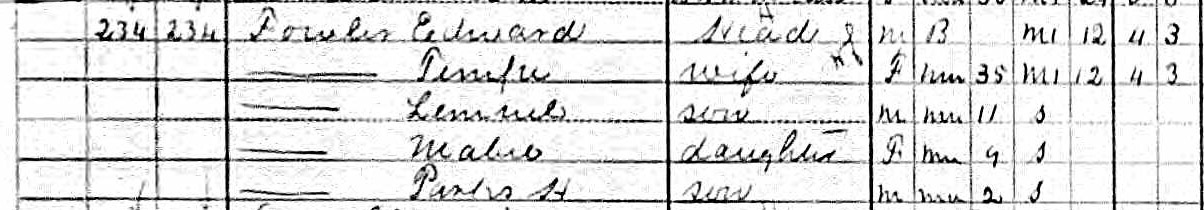 234 234 Fowler Edward Head M B M1 12 4 3
Tempie wife F Mu 35 M1 12 4 3
Lemuel son M Mu 11 S
Mabro daughter F Mu 9 S
Parks H son M Mu 2 S